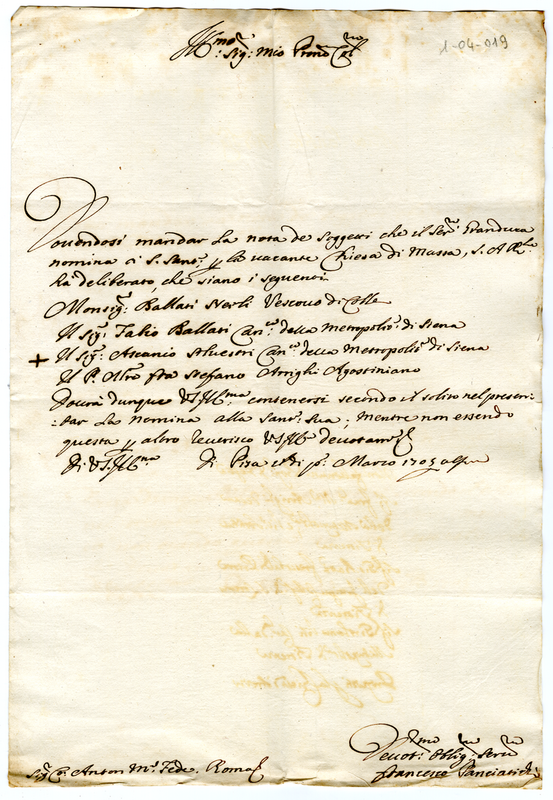 Ill.mo
Sig.r Mio Pron. Col.mo
1-04-019
Dovendosi mandar la nota de Soggetti che il Ser.mo Granduca
nomina a S. Sant.à p la vacante Chiesa di Massa, S. A. R.le
ha deliberato, che siano i seguenti
Monsig.r Ballati Nerli Vescovo di Colle
Il Sig.r Fabio Ballati Can.co della Metropolit.a di Siena
+ Il Sig.r Ascanio Silvestri Can.co della Metropolit.a di Siena
Il P. Mro fra Stefano Arrighi Agostiniano
Dovrà dunque VS Ill.ma contenersi secondo il solito nel presen-
:tar la nomina alla Sant.à Sua; mentre non essendo
questa p altro reverisco VS Ill.ma devotam.e
Di VS. Ill.ma Di Pisa li di p.o Marzo 1705
Sig.r Co: Anton M.a Fede. Roma
Devot.mo Oblig.mo Serv.re
Francesco Panciatichi